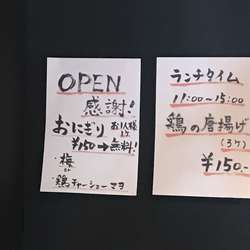 OPEN
感謝!
おにぎり お1人様1ケ
¥150→無料!
・梅
or
・鶏チャーシューマヨ
ランチタイム
11:00~15:00
鶏の唐揚げ
(3ケ)
¥150-